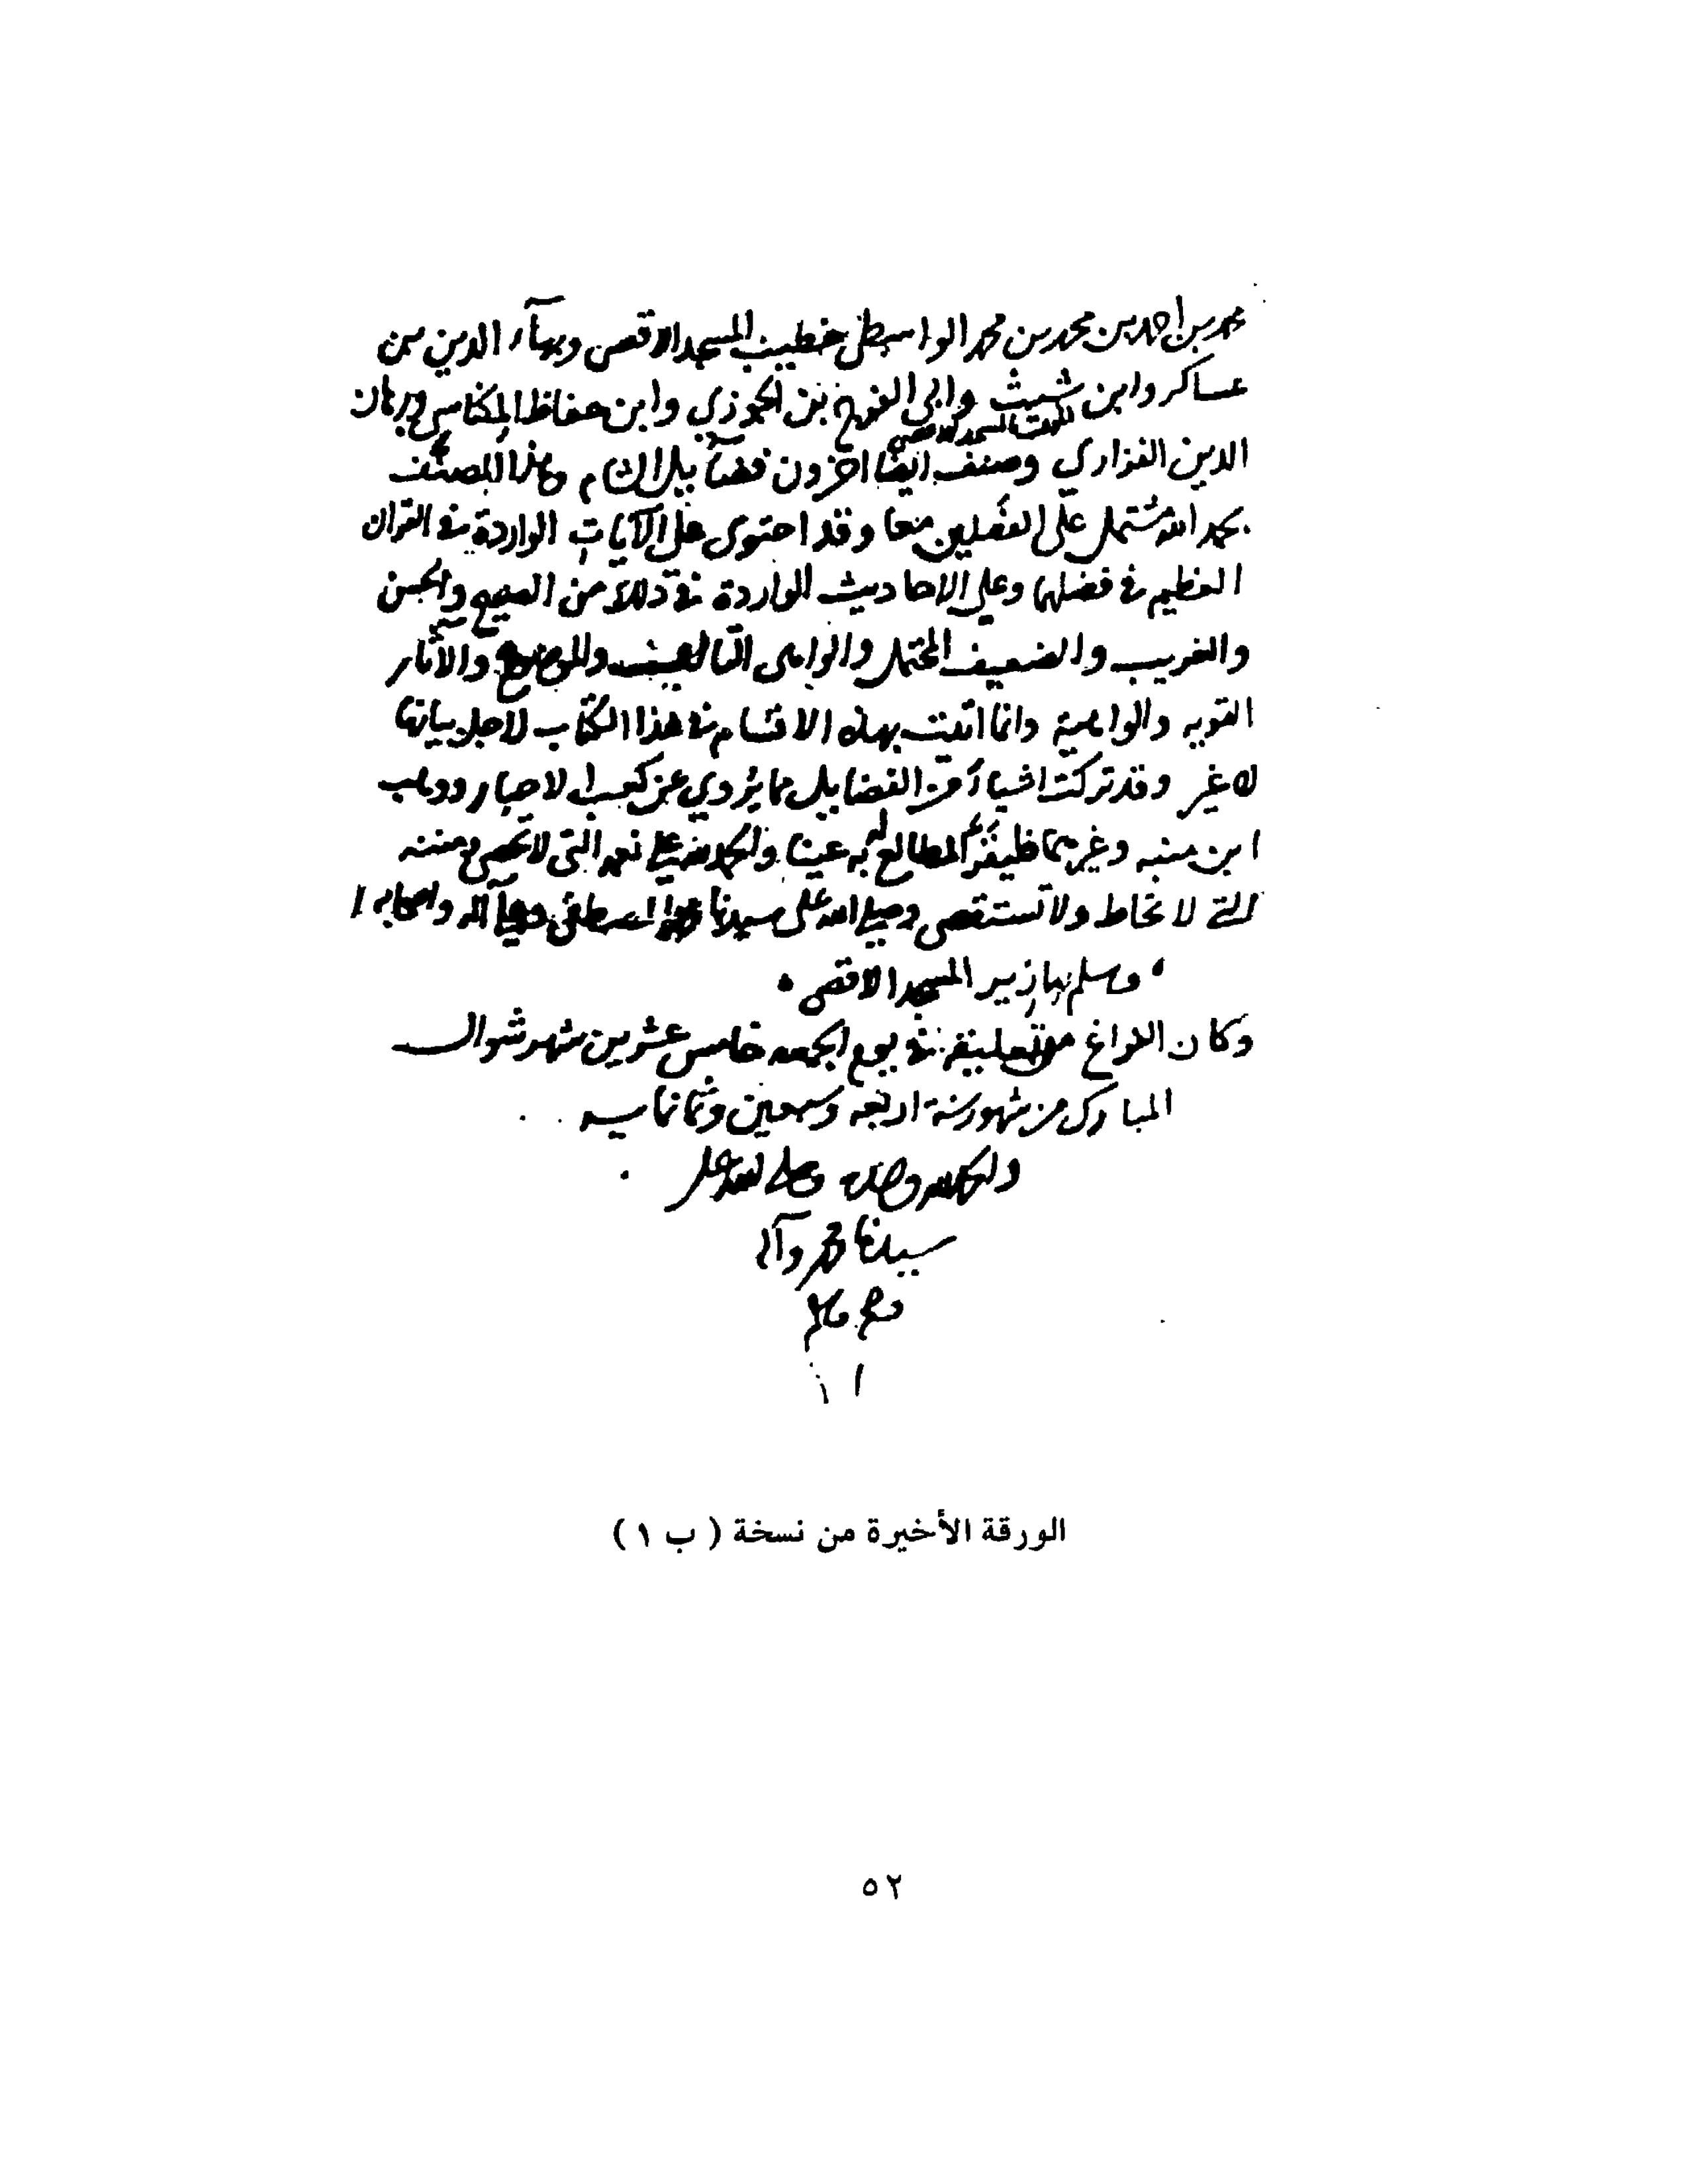 محمد بن احمد بن محمد بن محمد الواسطي خطيب المسجد الاقصى وبهآء الدين بن
عساكر وابن شيث وابي الفرج بن الجوزي وابن حفاظ المكناسي وبرهان
المسجد الاقصى
الدين الفزاري وصنف ايضا اخرون فضآيل الشام وهذا المصنف
بحمد الله مشتمل على الفضلين معا وقد احتوى على الآيات الواردة في القران
العظيم في فضلها وعلى الاحاديث الواردة في ذلك من الصحيح والحسن
والغريب والضعيف المحتمل والواهى التالف والموضوع والاثار
القويه والواهية وانما اتيت بهذه الاقسام في هذا الكتاب لاجل بيانها
لا غير وقد تركت اشياء من الفضايل مما يروي عن كعب الاحبار ووهب
ابن منبه وغيرهما المطالع به عينا والحمد لله على نعمه التى لا تحصى ومننه
التى لا تحاط ولا تستقصى وصلى الله على سيدنا محمد المصطفى وعلى آله واصحابه
وسلم المسجد الاقصى
وكان الفراغ من تعليقه في يوم الجمعه خامس عشرين شهر شوال
المبارك من شهور سنة اربعه وسبعين وثمانمايه
والحمد لله وحده وصلى الله على
سيدنا محمد وآله
الورقة الأخيرة من نسخة ( ب ١ )
٥٢